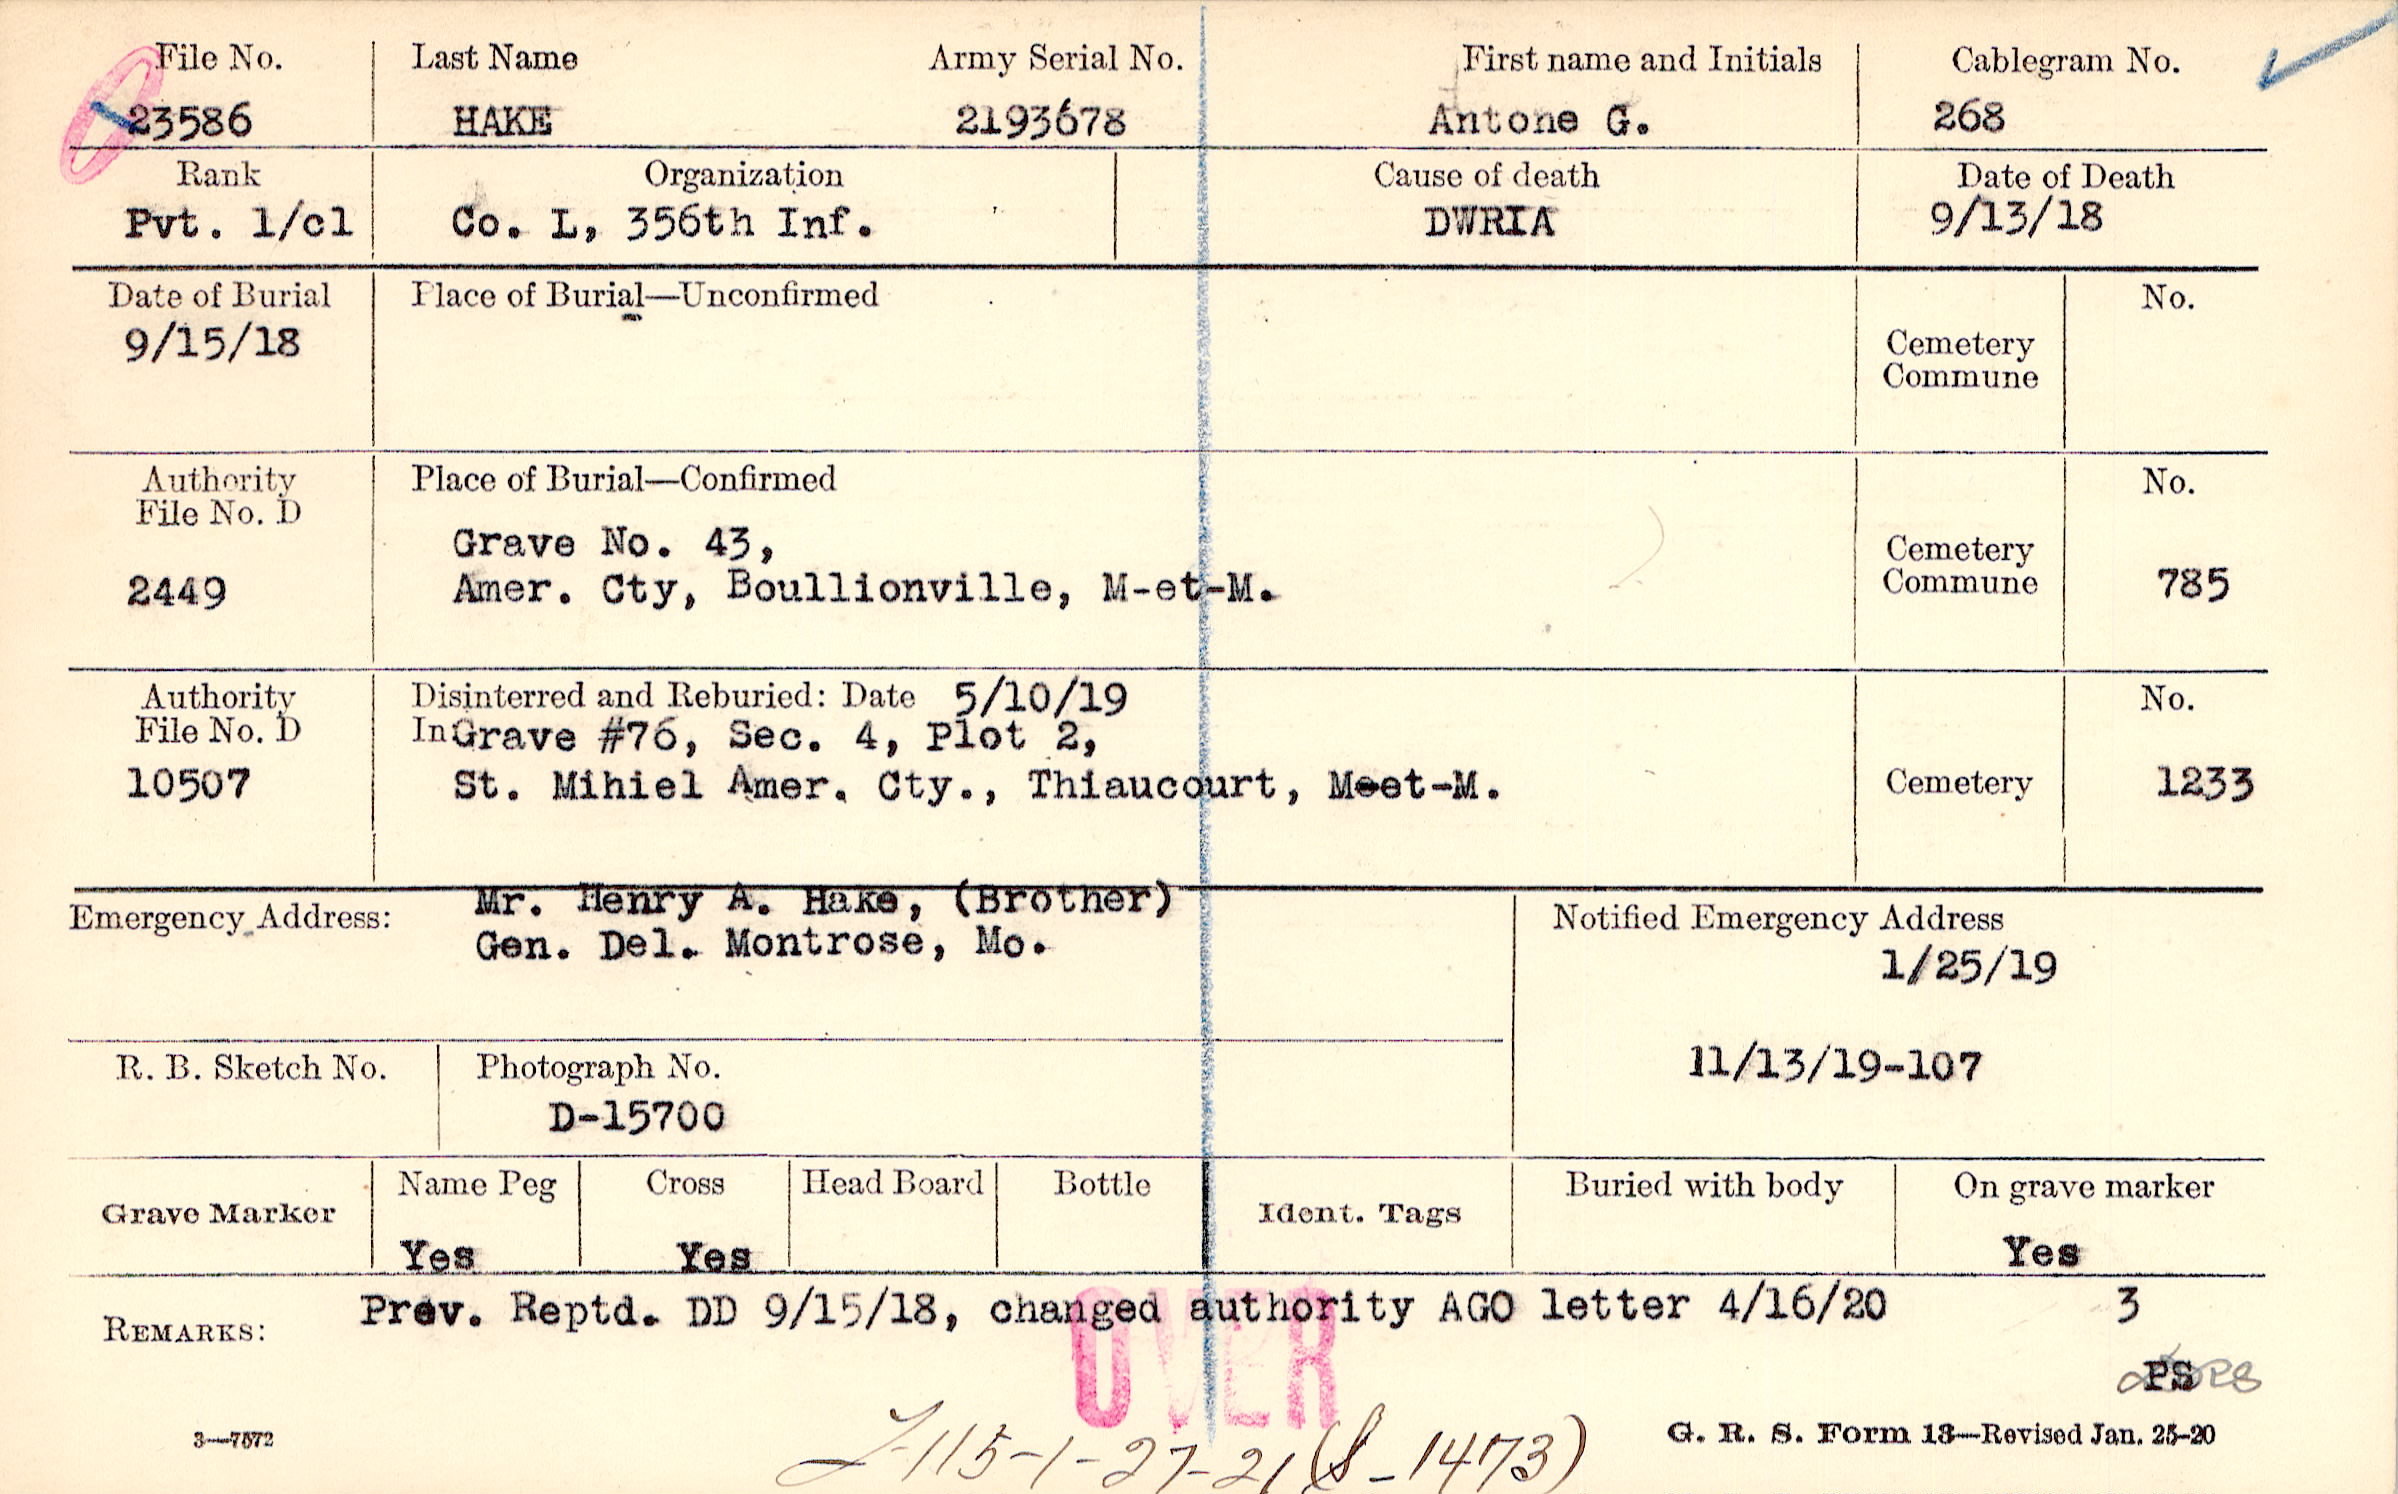 File No. Last Name Army Serial No. First name and Initials Cablegram No.
23586 HAKE 2193678 Antone G. 268
Rank Organization Cause of death Date of Death
Pvt. 1/cl Co. L, 356th Inf. DWRIA 9/13/18
Date of Burial Place of Burial—Unconfirmed No.
9/15/18 Cemetery
Commune
Authority Place of Burial—Confirmed No.
File No. D
Grave No. 43, Cemetery
2449 Amer. Cty, Boullionville, M-et-M. Commune 785
Authority Disinterred and Reburied: Date 5/10/19 No.
File No. D In Grave #76, Sec. 4, Plot 2,
10507 St. Mihiel Amer. Cty., Thiaucourt, Meet-M. Cemetery 1233
Mr. Henry A. Hake, (Brother)
Emergency Address: Notified Emergency Address
Gen. Del. Montrose, Mo. 1/25/19
R. B. Sketch No. Photograph No. 11/13/19-107
D-15700
Grave Marker Name Peg Cross Head Board Bottle Ident. Tags Buried with body On grave marker
Yes Yes Yes
REMARKS: Prev. Reptd. DD 9/15/18, changed authority AGO letter 4/16/20 3
OVER
PS
3—7572 G. R. S. Form 13—Revised Jan. 25-20
-115-1-27-21 (S-1473)